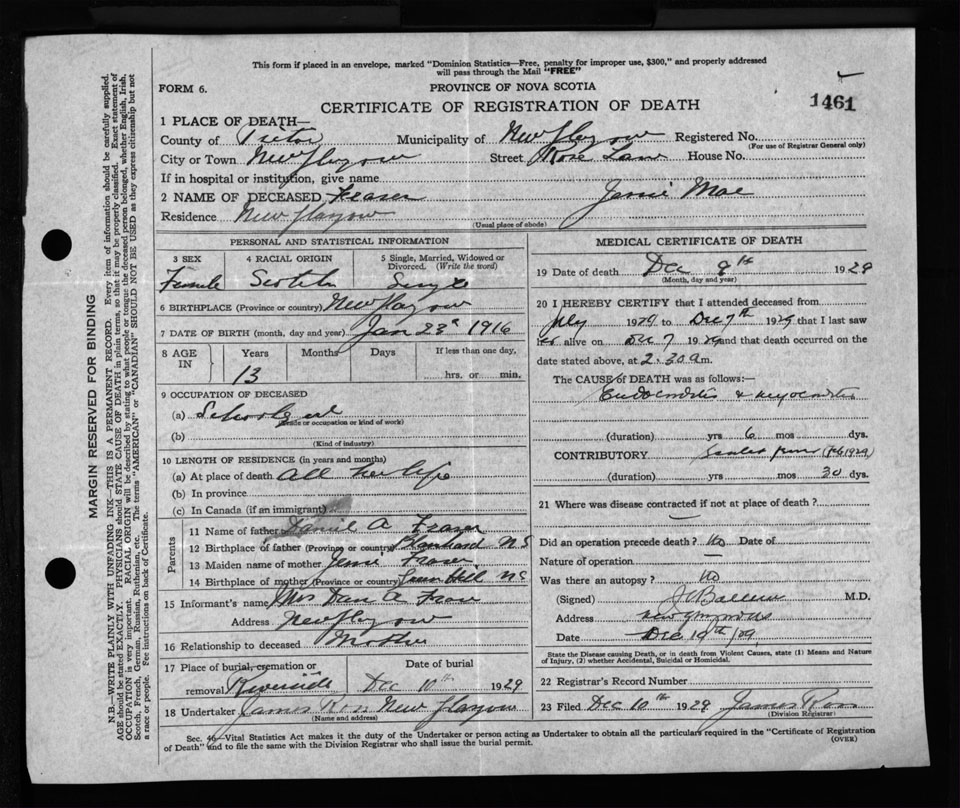 This form if placed in an envelope, marked "Dominion Statistics—Free, penalty for improper use, $300," and properly addressed
will pass through the Mail "FREE"
FORM 6.
PROVINCE OF NOVA SCOTIA
1461
CERTIFICATE OF REGISTRATION OF DEATH
1 PLACE OF DEATH—
County of Pictou Municipality of New Glasgow Registered No.
(For use of Registrar General only)
City or Town New Glasgow Street Rose Lane House No.
If in hospital or institution, give name
2 NAME OF DECEASED Fraser Jessie Mae
Residence New Glasgow
(Usual place of abode)
PERSONAL AND STATISTICAL INFORMATION
3 SEX 4 RACIAL ORIGIN 5 Single, Married, Widowed or
Divorced. (Write the word)
Female Scotch Single
6 BIRTHPLACE (Province or country) New Glasgow
7 DATE OF BIRTH (month, day and year) Jan 23 1916
8 AGE IN Years Months Days If less than one day,
13 hrs. or min.
9 OCCUPATION OF DECEASED
(a) School girl
(Trade or occupation or kind of work)
(b)
(Kind of industry)
10 LENGTH OF RESIDENCE (in years and months)
(a) At place of death all her life
(b) In province
(c) In Canada (if an immigrant)
Parents
11 Name of father Daniel A Fraser
12 Birthplace of father (Province or country) Blanchard NS
13 Maiden name of mother Jessie Fraser
14 Birthplace of mother (Province or country) Green Hill NS
15 Informant's name Mrs Dan A Fraser
Address New Glasgow
16 Relationship to deceased Mother
17 Place of burial, cremation or Date of burial
removal Riverside Dec 10th 1929
18 Undertaker James Ross New Glasgow
(Name and address)
MEDICAL CERTIFICATE OF DEATH
19 Date of death Dec 9th 1929
(Month, day and year)
20 I HEREBY CERTIFY that I attended deceased from
July 1929 to Dec 7th 1929 that I last saw
alive on Dec 7 1929 and that death occurred on the
date stated above, at 2.30 a.m.
The CAUSE of DEATH was as follows:—
Endocarditis & myocarditis
(duration) yrs 6 mos dys.
CONTRIBUTORY Scarlet fever (Feb 1929)
(duration) yrs mos 30 dys.
21 Where was disease contracted if not at place of death?
Did an operation precede death? No Date of
Nature of operation —
Was there an autopsy? No
(Signed) M.D.
Address
Date Dec 19th /29
State the Disease causing Death, or in death from Violent Causes, state (1) Means and Nature
of Injury, (2) whether Accidental, Suicidal or Homicidal.
22 Registrar's Record Number
23 Filed Dec 10th 1929 James Ross
(Division Registrar)
Sec. 46—Vital Statistics Act makes it the duty of the Undertaker or person acting as Undertaker to obtain all the particulars required in the "Certificate of Registration
of Death" and to file the same with the Division Registrar who shall issue the burial permit.
(OVER)
MARGIN RESERVED FOR BINDING
N.B.—WRITE PLAINLY WITH UNFADING INK—THIS IS A PERMANENT RECORD. Every item of information should be carefully supplied.
AGE should be stated EXACTLY. PHYSICIANS should STATE CAUSE OF DEATH in plain terms, so that it may be properly classified. Exact statement of
OCCUPATION is very important. RACIAL ORIGIN will be described by stating to what people or tongue the deceased person belonged, whether English, Irish,
Scotch, French, German, Russian, Ruthenian, etc. The terms "AMERICAN" or "CANADIAN" SHOULD NOT BE USED as they express citizenship but not
a race or people. Fee instructions on back of Certificate.